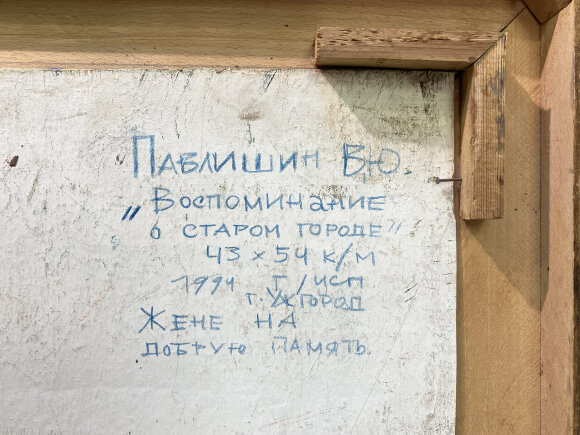 Павлишин В.Ю.
„Воспоминание
о старом городе"
43 х 54 к/м
1994 г/исп
г. Ужгород
Жене на
добрую память